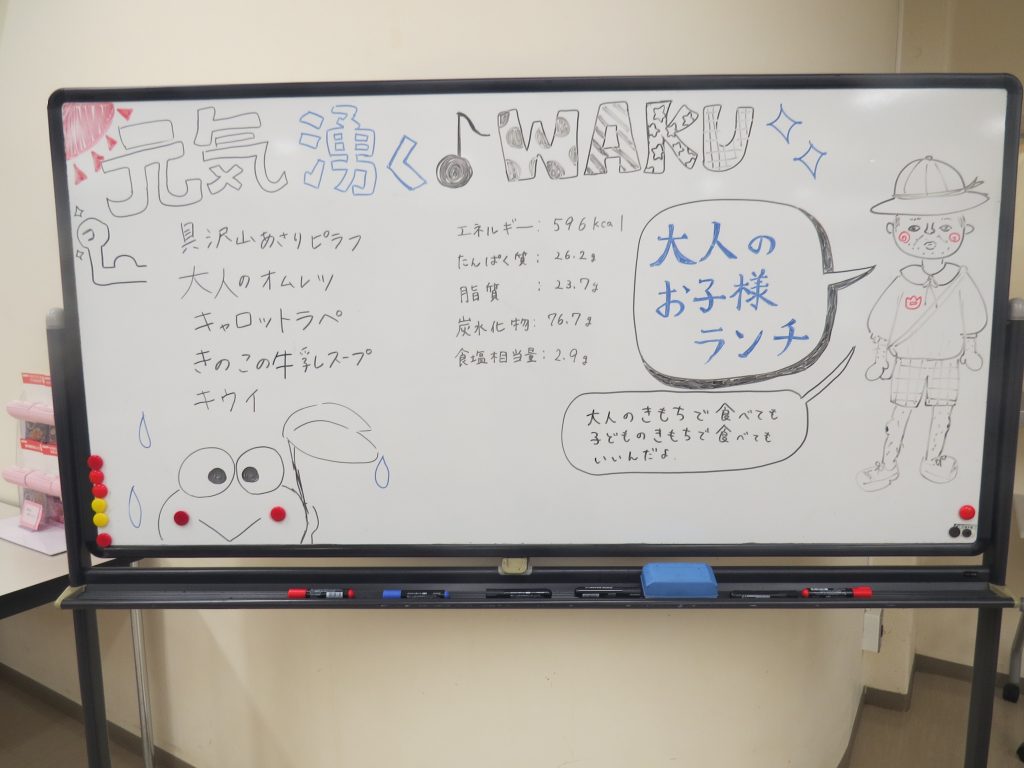 元気湧く♪WAKU
具沢山あさりピラフ
大人のオムレツ
キャロットラペ
きのこの牛乳スープ
キウイ
エネルギー：596kcal
たんぱく質：26.2g
脂質：23.7g
炭水化物：76.7g
食塩相当量：2.9g
大人の
お子様
ランチ
大人のきもちで食べても
子どものきもちで食べても
いいんだよ.